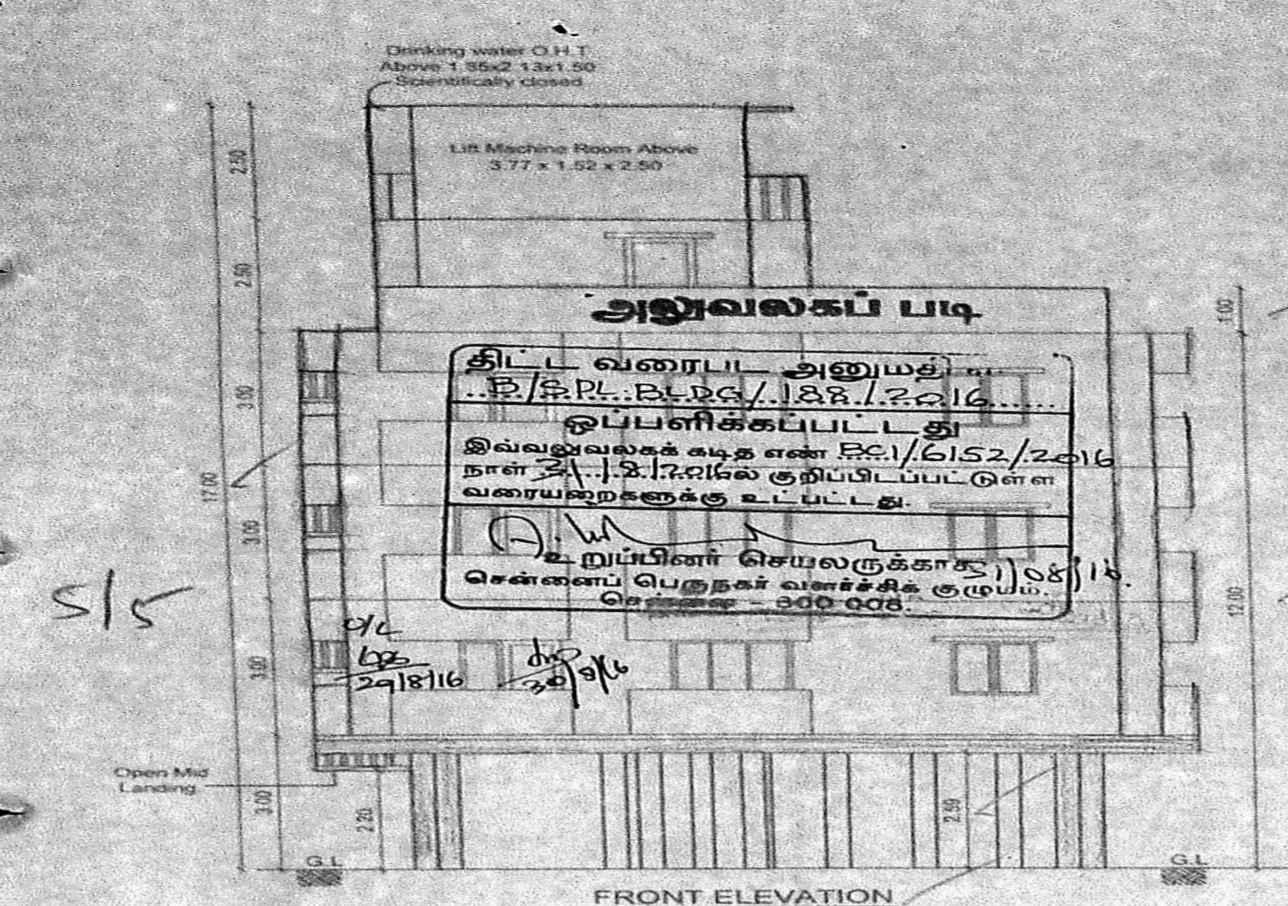 Drinking water O.H.T
Above 1.85x2.13x1.50
Scientifically closed
Lift Machine Room Above
3.77 x 1.52 x 2.50
2.50
2.50
3.00
3.00
3.00
3.00
17.00
1.00
12.00
2.20
2.59
அலுவலகப் படி
திட்ட வரைபட அனுமதி
B/SPL.BLDG/188/2016
ஒப்பளிக்கப்பட்டது
இவ்வலுவலகக் கடித எண் BC1/6152/2016
நாள் 31/8/2016ல் குறிப்பிடப்பட்டுள்ள
வரையறைகளுக்கு உட்பட்டது.
உறுப்பினர் செயலருக்காக 31/08/16.
சென்னைப் பெருநகர் வளர்ச்சிக் குழுமம்.
சென்னை - 600 008.
S/5
O/C
29/8/16
30/8/16
Open Mid
Landing
G.L
G.L
FRONT ELEVATION